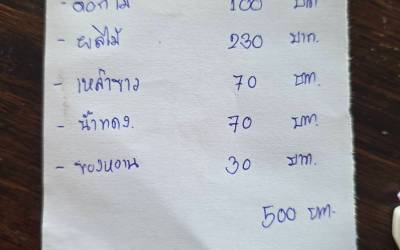 - ดอกไม้ 100 บาท
- ผลไม้ 230 บาท.
- เหล้าขาว 70 บท.
- น้ำแดง. 70 บท.
- ของหวาน 30 บาท.
500 บาท.